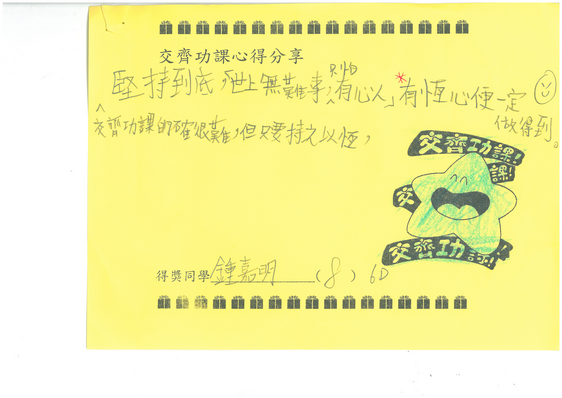 交齊功課心得分享
只怕
堅持到底，「世上無難事，有心人」*有恆心便一定
交齊功課的確很難，但只要持之以恆，
做得到。
交齊功課!
課!
交
交齊功課!
得獎同學 鍾嘉明 (8) 6D